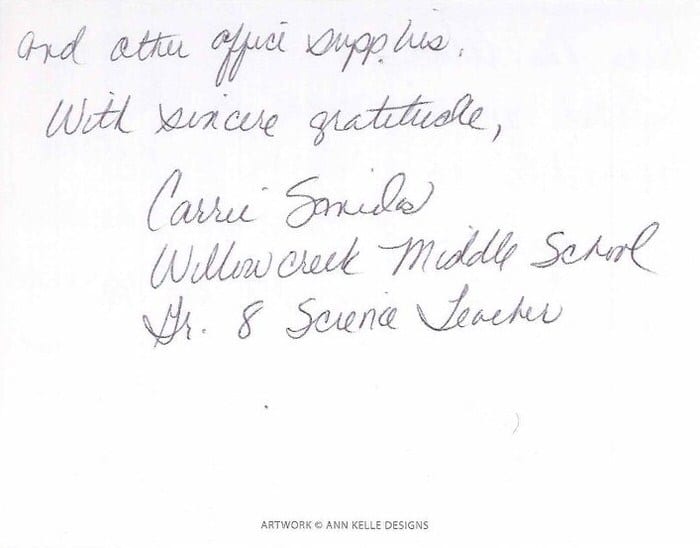 and other office supplies.
With sincere gratitude,
Carrie
Willowcreek Middle School
Gr. 8 Science Teacher
ARTWORK © ANN KELLE DESIGNS